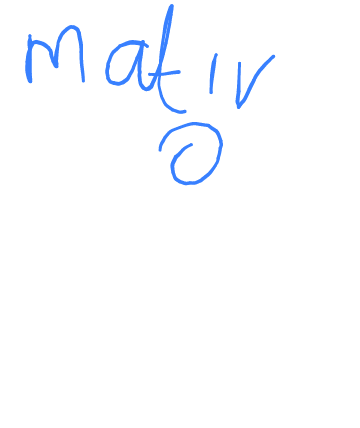 mativ
o